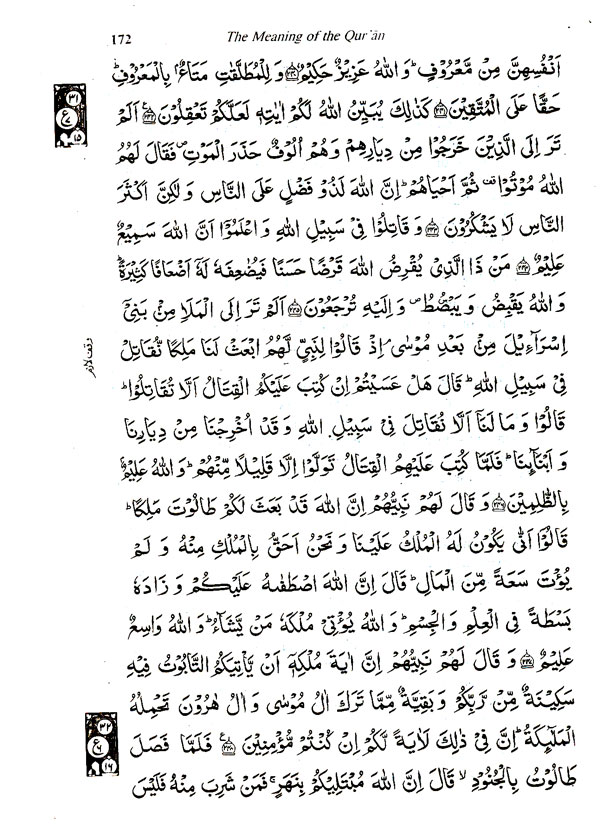 172
The Meaning of the Qur'ān
اَنْفُسِهِنَّ مِنْ مَّعْرُوْفٍ ؕ وَاللّٰهُ عَزِیْزٌ حَكِیْمٌ ﴿۲۴۰﴾ وَ لِلْمُطَلَّقٰتِ مَتَاعٌۢ بِالْمَعْرُوْفِ ؕ
حَقًّا عَلَی الْمُتَّقِیْنَ ﴿۲۴۱﴾ كَذٰلِكَ یُبَیِّنُ اللّٰهُ لَكُمْ اٰیٰتِهٖ لَعَلَّكُمْ تَعْقِلُوْنَ ﴿۲۴۲﴾ اَلَمْ
۳۱
ع
۱۵
تَرَ اِلَی الَّذِیْنَ خَرَجُوْا مِنْ دِیَارِهِمْ وَهُمْ اُلُوْفٌ حَذَرَ الْمَوْتِ ۪ فَقَالَ لَهُمُ
اللّٰهُ مُوْتُوْا ۫ ثُمَّ اَحْیَاهُمْ ؕ اِنَّ اللّٰهَ لَذُوْ فَضْلٍ عَلَی النَّاسِ وَ لٰكِنَّ اَكْثَرَ
النَّاسِ لَا یَشْكُرُوْنَ ﴿۲۴۳﴾ وَ قَاتِلُوْا فِیْ سَبِیْلِ اللّٰهِ وَ اعْلَمُوْۤا اَنَّ اللّٰهَ سَمِیْعٌ
عَلِیْمٌ ﴿۲۴۴﴾ مَنْ ذَا الَّذِیْ یُقْرِضُ اللّٰهَ قَرْضًا حَسَنًا فَیُضٰعِفَهٗ لَهٗۤ اَضْعَافًا كَثِیْرَةً ؕ
وَ اللّٰهُ یَقْبِضُ وَ یَبْصُۜطُ ۪ وَ اِلَیْهِ تُرْجَعُوْنَ ﴿۲۴۵﴾ اَلَمْ تَرَ اِلَی الْمَلَاِ مِنْۢ بَنِیْۤ
اِسْرَآءِیْلَ مِنْۢ بَعْدِ مُوْسٰی ۘ اِذْ قَالُوْا لِنَبِیٍّ لَّهُمُ ابْعَثْ لَنَا مَلِكًا نُّقَاتِلْ
وقف لازم
فِیْ سَبِیْلِ اللّٰهِ ؕ قَالَ هَلْ عَسَیْتُمْ اِنْ كُتِبَ عَلَیْكُمُ الْقِتَالُ اَلَّا تُقَاتِلُوْا ؕ
قَالُوْا وَ مَا لَنَاۤ اَلَّا نُقَاتِلَ فِیْ سَبِیْلِ اللّٰهِ وَ قَدْ اُخْرِجْنَا مِنْ دِیَارِنَا
وَ اَبْنَآئِنَا ؕ فَلَمَّا كُتِبَ عَلَیْهِمُ الْقِتَالُ تَوَلَّوْا اِلَّا قَلِیْلًا مِّنْهُمْ ؕ وَاللّٰهُ عَلِیْمٌۢ
بِالظّٰلِمِیْنَ ﴿۲۴۶﴾ وَ قَالَ لَهُمْ نَبِیُّهُمْ اِنَّ اللّٰهَ قَدْ بَعَثَ لَكُمْ طَالُوْتَ مَلِكًا ؕ
قَالُوْۤا اَنّٰی یَكُوْنُ لَهُ الْمُلْكُ عَلَیْنَا وَ نَحْنُ اَحَقُّ بِالْمُلْكِ مِنْهُ وَ لَمْ
یُؤْتَ سَعَةً مِّنَ الْمَالِ ؕ قَالَ اِنَّ اللّٰهَ اصْطَفٰىهُ عَلَیْكُمْ وَ زَادَهٗ
بَسْطَةً فِی الْعِلْمِ وَ الْجِسْمِ ؕ وَ اللّٰهُ یُؤْتِیْ مُلْكَهٗ مَنْ یَّشَآءُ ؕ وَ اللّٰهُ وَاسِعٌ
عَلِیْمٌ ﴿۲۴۷﴾ وَ قَالَ لَهُمْ نَبِیُّهُمْ اِنَّ اٰیَةَ مُلْكِهٖۤ اَنْ یَّاْتِیَكُمُ التَّابُوْتُ فِیْهِ
سَكِیْنَةٌ مِّنْ رَّبِّكُمْ وَ بَقِیَّةٌ مِّمَّا تَرَكَ اٰلُ مُوْسٰی وَ اٰلُ هٰرُوْنَ تَحْمِلُهُ
الْمَلٰٓئِكَةُ ؕ اِنَّ فِیْ ذٰلِكَ لَاٰیَةً لَّكُمْ اِنْ كُنْتُمْ مُّؤْمِنِیْنَ ﴿۲۴۸﴾ ع فَلَمَّا فَصَلَ
۳۲
ع
۱۶
طَالُوْتُ بِالْجُنُوْدِ ۙ قَالَ اِنَّ اللّٰهَ مُبْتَلِیْكُمْ بِنَهَرٍ ۚ فَمَنْ شَرِبَ مِنْهُ فَلَیْسَ